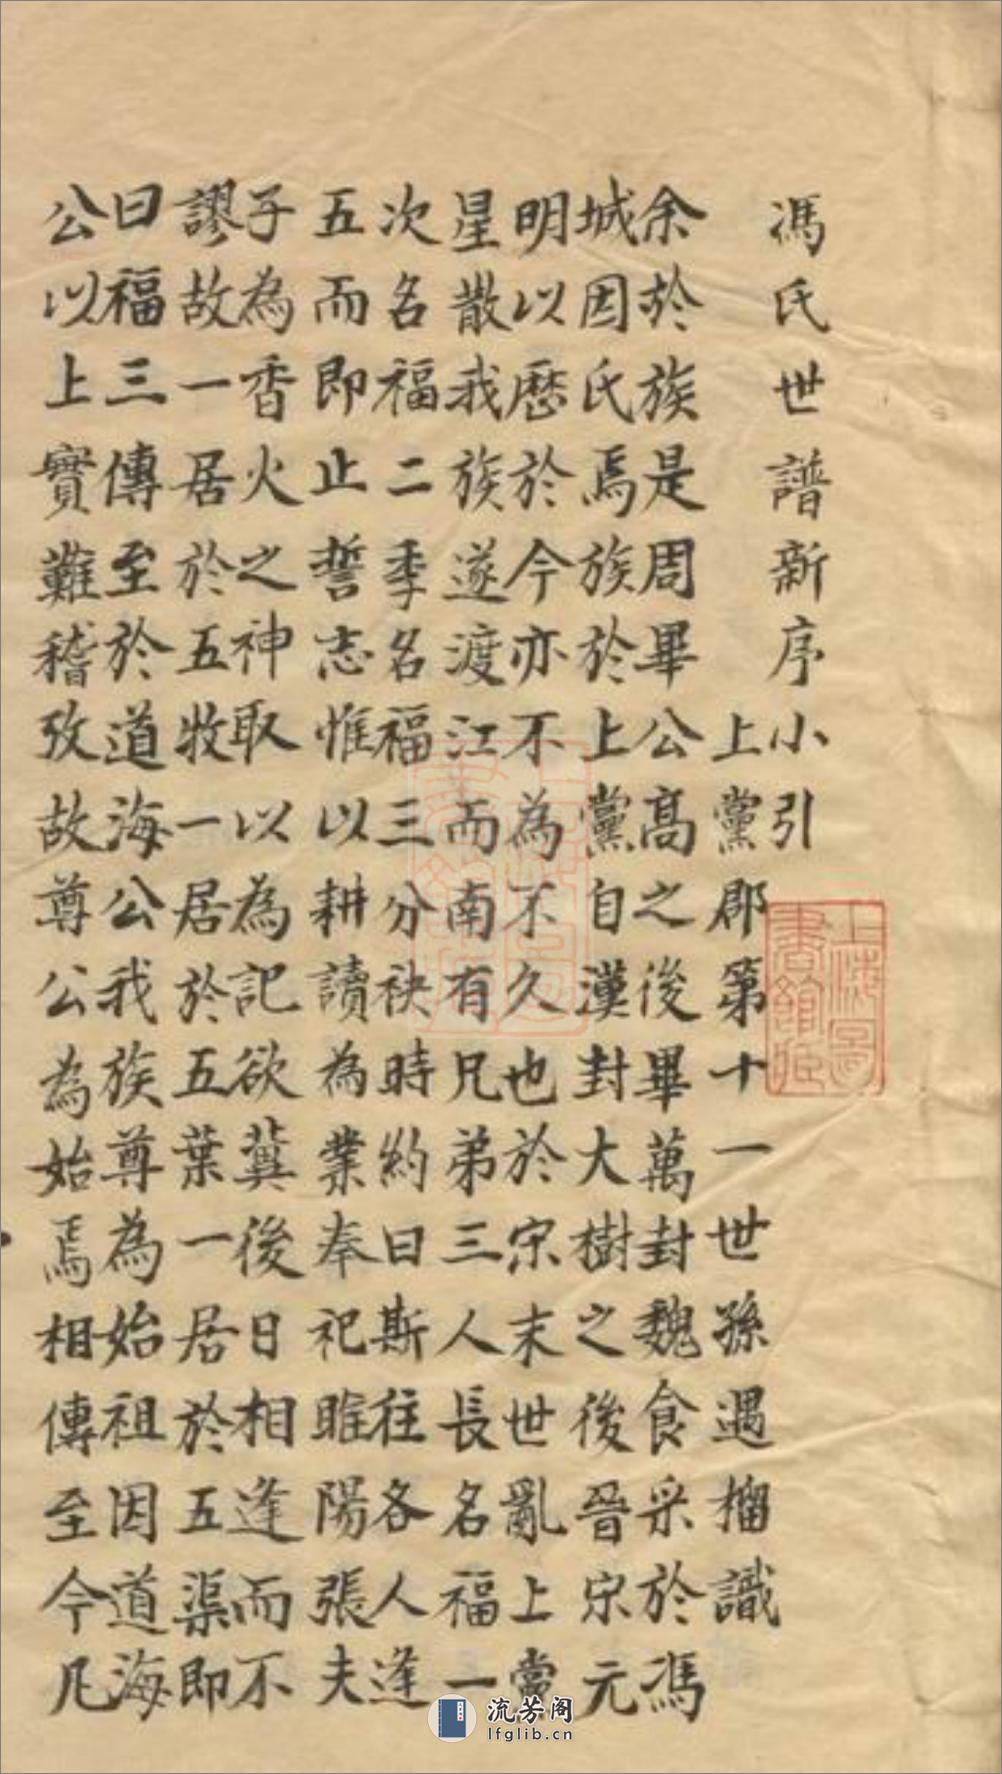 馮氏世譜新序小引
上黨郡第十一世孫遇榴識
余於族是周畢公高之後畢萬封魏食采於馮
城因氏焉族於上黨自漢封大樹之後晉宋元
明以歷於今亦不為不久也於宋末世亂上黨
星散我族遂渡江而南有兄弟三人長名福一
次名福二季名福三分袂時約曰斯往各人逢
五而即止誓志惟以耕讀為業奉祀睢陽張夫
子為一香火之神取以為記欲冀後日相逢而不
謬故一居於五牧一居於五葉一居於五渠即
曰福三傳至於道海公我族尊為始祖因道海
公以上實難稽攷故尊公為始焉相傳至今凡
上海圖書館藏
上海圖書館藏
流芳阁
lfglib.cn